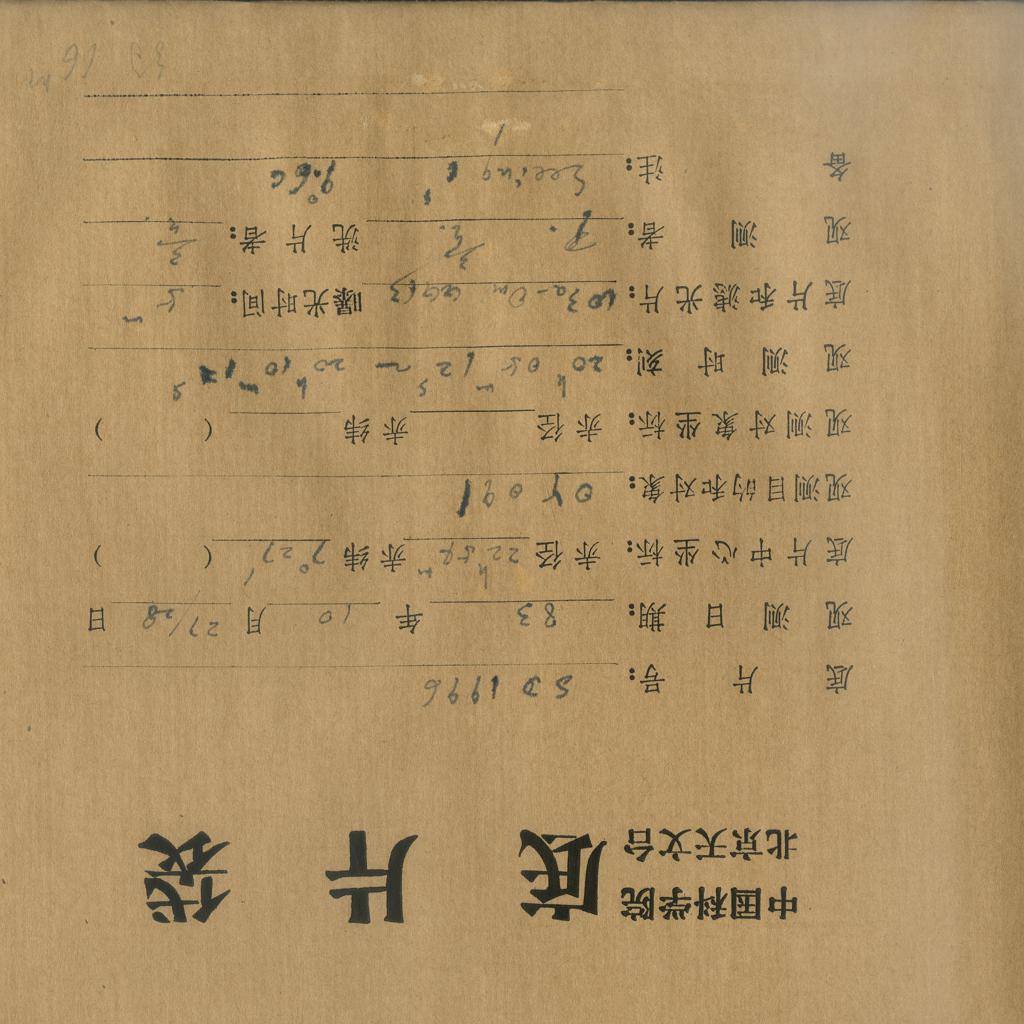 中国科学院
北京天文台 底片袋
底片号: SD1996
观测日期: 83 年 10 月 27/28 日
底片中心坐标: 赤径 赤纬 7°27′ ( )
观测目的和对象:
观测对象坐标: 赤径 赤纬 ( )
观测时刻: 20ʰ05ᵐ12ˢ ~ 20ʰ10ᵐ12ˢ
底片和滤光片: 103a-O GG13 曝光时间: 5ᵐ
观测者: 洗片者:
备注: Seeing 9.°6C